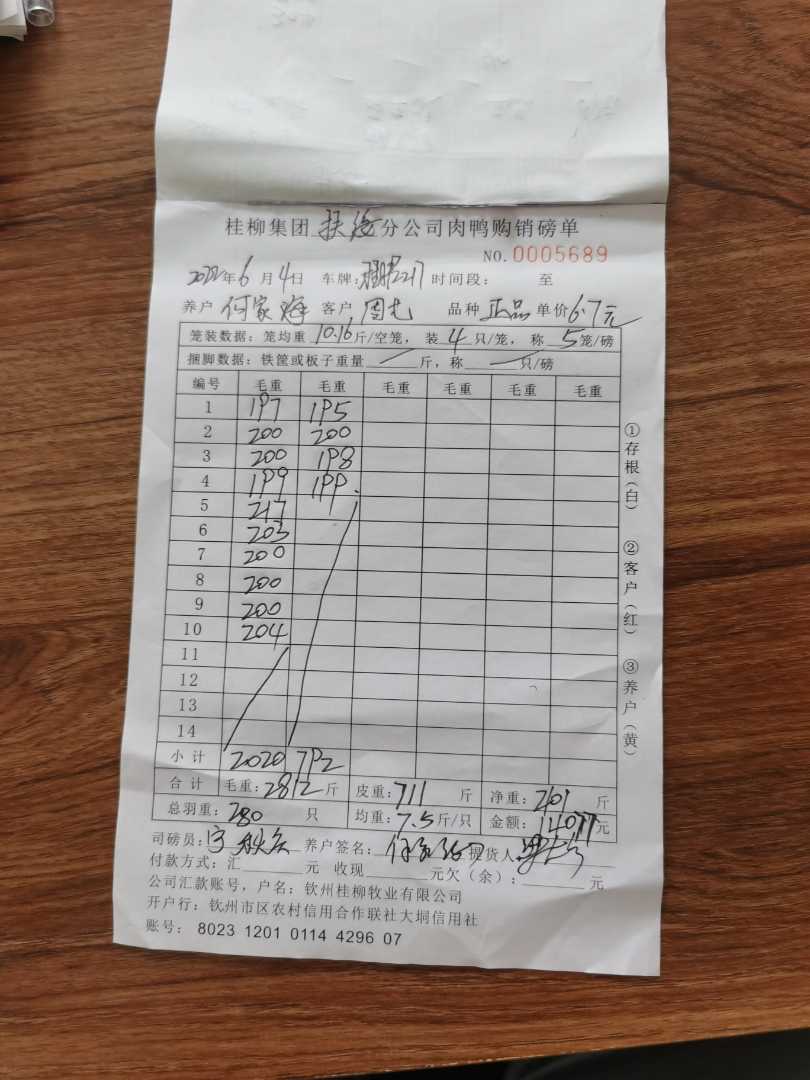 桂柳集团 扶绥 分公司肉鸭购销磅单
NO.0005689
2022年6月4日 车牌: 2217 时间段: 至
养户 何家海 客户 周光 品种 正品 单价 6.7元
笼装数据：笼均重 10.16 斤/空笼，装 4 只/笼，称 5 笼/磅
捆脚数据：铁筐或板子重量 斤，称 只/磅
编号 毛重 毛重 毛重 毛重 毛重 毛重
1 197 195
2 200 200
3 200 198
4 199 199
5 217
6 203
7 200
8 200
9 200
10 204
11
12
13
14
小计 2020 792
合计 毛重: 2812 斤 皮重: 711 斤 净重: 2101 斤
总羽重: 280 只 均重: 7.5 斤/只 金额: 14077 元
司磅员: 养户签名: 提货人:
付款方式: 汇 元 收现 元欠（余）: 元
公司汇款账号，户名：钦州桂柳牧业有限公司
开户行：钦州市区农村信用合作联社大垌信用社
账号： 8023 1201 0114 4296 07
①存根（白） ②客户（红） ③养户（黄）